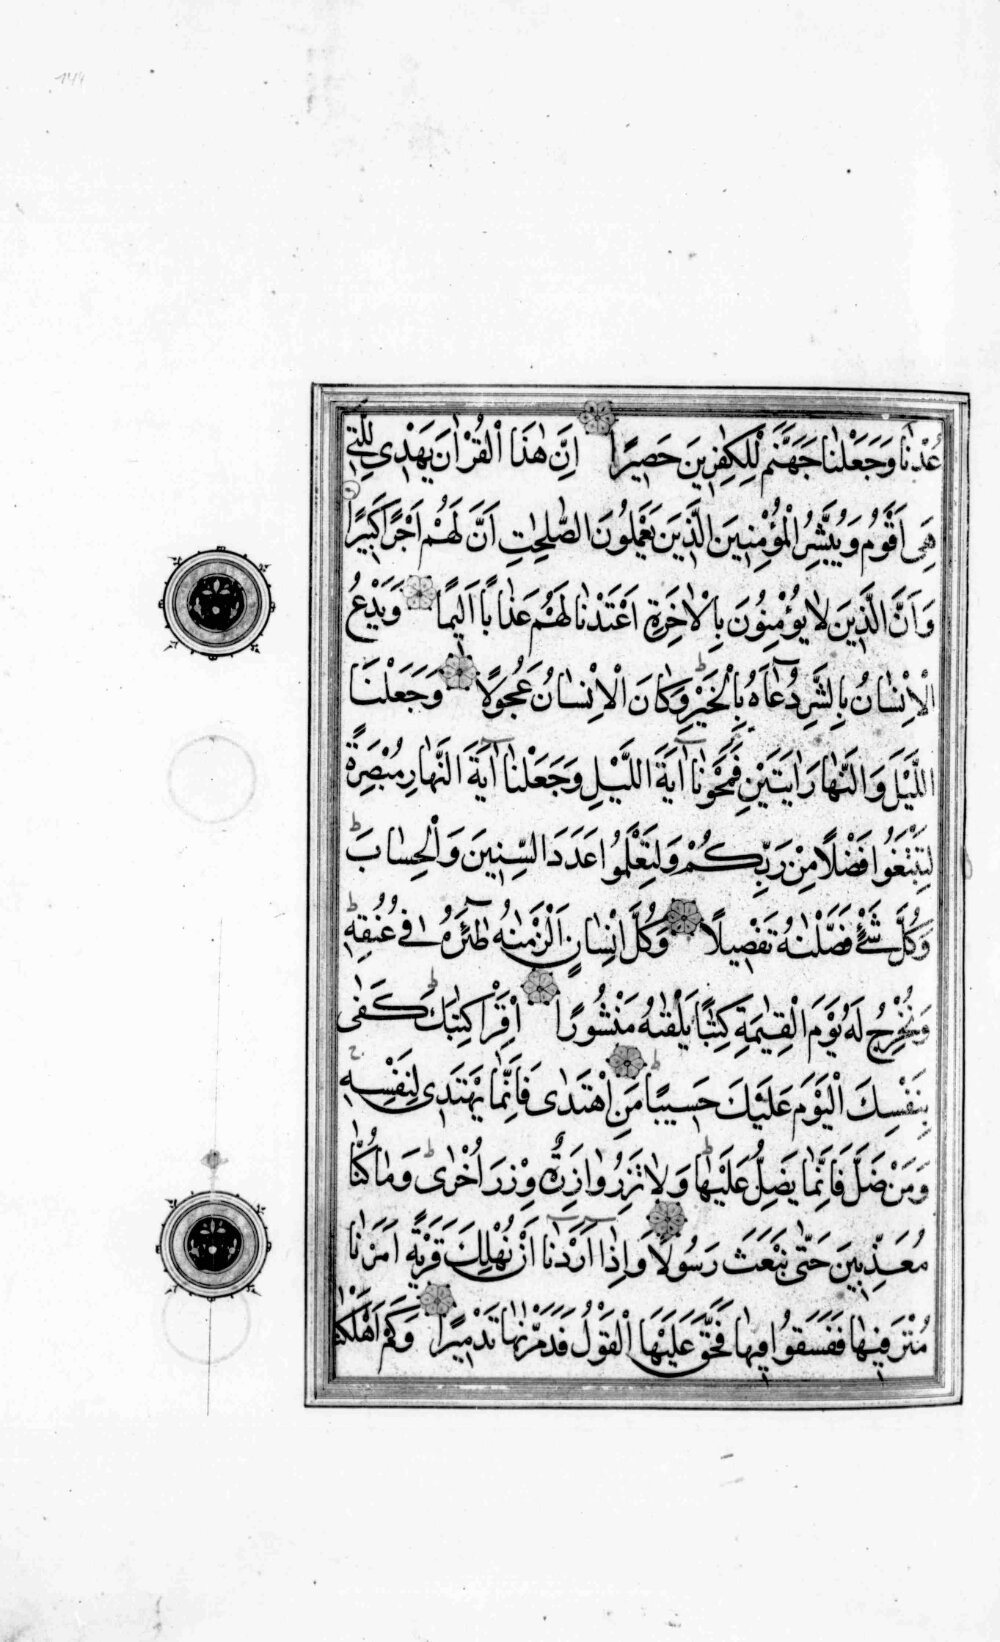 عُدْنَا وَجَعَلْنَا جَهَنَّمَ لِلْكٰفِرِينَ حَصِيرًا اِنَّ هٰذَا الْقُرْاٰنَ يَهْدِى لِلَّتِى
هِىَ اَقْوَمُ وَيُبَشِّرُ الْمُؤْمِنِينَ الَّذِينَ يَعْمَلُونَ الصّٰلِحٰتِ اَنَّ لَهُمْ اَجْرًا كَبِيرًا
وَاَنَّ الَّذِينَ لَا يُؤْمِنُونَ بِالْاٰخِرَةِ اَعْتَدْنَا لَهُمْ عَذَابًا اَلِيمًا وَيَدْعُ
الْاِنْسَانُ بِالشَّرِّ دُعَآءَهُ بِالْخَيْرِ وَكَانَ الْاِنْسَانُ عَجُولًا وَجَعَلْنَا
اللَّيْلَ وَالنَّهَارَ اٰيَتَيْنِ فَمَحَوْنَآ اٰيَةَ اللَّيْلِ وَجَعَلْنَآ اٰيَةَ النَّهَارِ مُبْصِرَةً
لِتَبْتَغُوا فَضْلًا مِنْ رَبِّكُمْ وَلِتَعْلَمُوا عَدَدَ السِّنِينَ وَالْحِسَابَ
وَكُلَّ شَىْءٍ فَصَّلْنٰهُ تَفْصِيلًا وَكُلَّ اِنْسَانٍ اَلْزَمْنٰهُ طٰٓئِرَهُ فِى عُنُقِهِ
وَنُخْرِجُ لَهُ يَوْمَ الْقِيٰمَةِ كِتٰبًا يَلْقٰىهُ مَنْشُورًا اِقْرَأْ كِتٰبَكَ كَفٰى
بِنَفْسِكَ الْيَوْمَ عَلَيْكَ حَسِيبًا مَنِ اهْتَدٰى فَاِنَّمَا يَهْتَدِى لِنَفْسِهِ
وَمَنْ ضَلَّ فَاِنَّمَا يَضِلُّ عَلَيْهَا وَلَا تَزِرُ وَازِرَةٌ وِزْرَ اُخْرٰى وَمَا كُنَّا
مُعَذِّبِينَ حَتّٰى نَبْعَثَ رَسُولًا وَاِذَآ اَرَدْنَآ اَنْ نُهْلِكَ قَرْيَةً اَمَرْنَا
مُتْرَفِيهَا فَفَسَقُوا فِيهَا فَحَقَّ عَلَيْهَا الْقَوْلُ فَدَمَّرْنٰهَا تَدْمِيرًا وَكَمْ اَهْلَكْنَا